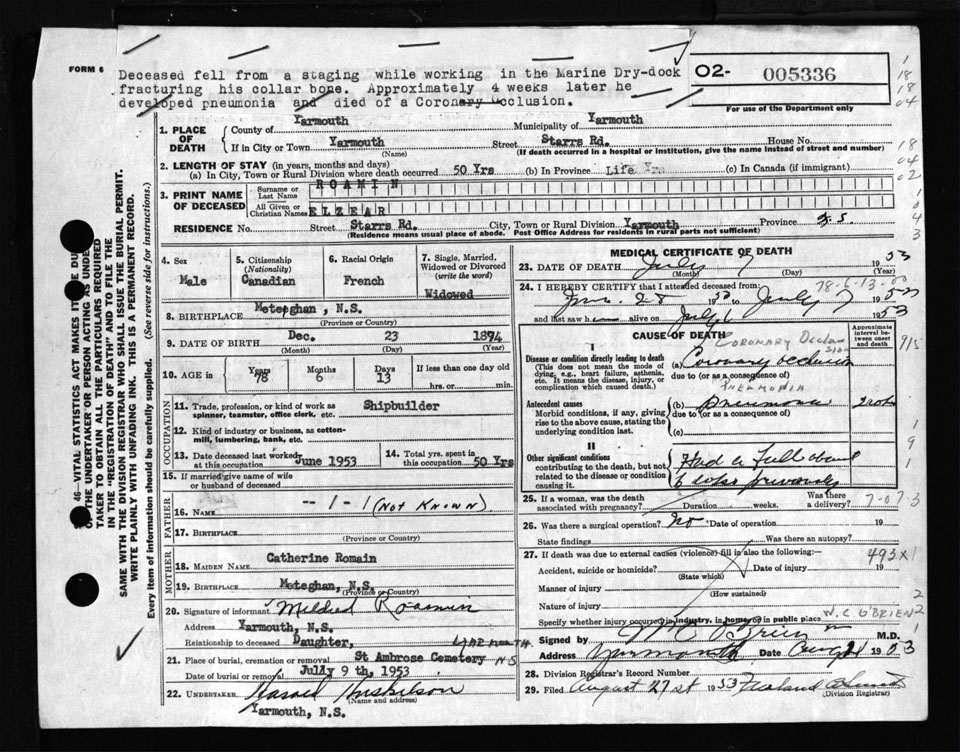 FORM 6
Deceased fell from a staging while working in the Marine Dry-dock
fracturing his collar bone. Approximately 4 weeks later he
developed pneumonia and died of a Coronary Occlusion.
02- 005336
For use of the Department only
1
18
18
04
18
04
02
1. PLACE OF DEATH
County of Yarmouth Municipality of Yarmouth
If in City or Town Yarmouth Street Starrs Rd. House No.
(Name) (If death occurred in a hospital or institution, give the name instead of street and number)
2. LENGTH OF STAY (in years, months and days)
(a) In City, Town or Rural Division where death occurred 50 Yrs (b) In Province Life Yrs (c) In Canada (if immigrant)
3. PRINT NAME OF DECEASED
Surname or Last Name ROAMIN
All Given or Christian Names ELZEAR
RESIDENCE No. Street Starrs Rd. City, Town or Rural Division Yarmouth Province N.S.
(Residence means usual place of abode. Post Office Address for residents in rural parts not sufficient)
46—VITAL STATISTICS ACT MAKES IT
THE UNDERTAKER OR PERSON ACTING AS
TAKER TO OBTAIN ALL THE PARTICULARS REQUIRED
IN THE "REGISTRATION OF DEATH" AND TO FILE THE
SAME WITH THE DIVISION REGISTRAR WHO SHALL ISSUE THE BURIAL PERMIT.
WRITE PLAINLY WITH UNFADING INK. THIS IS A PERMANENT RECORD.
Every item of information should be carefully supplied. (See reverse side for instructions.)
4. Sex
Male
5. Citizenship (Nationality)
Canadian
6. Racial Origin
French
7. Single, Married, Widowed or Divorced (write the word)
Widowed
8. BIRTHPLACE Meteghan, N.S.
(Province or Country)
9. DATE OF BIRTH Dec. 23 1874
(Month) (Day) (Year)
10. AGE in Years 78 Months 6 Days 13 If less than one day
hrs. or min.
OCCUPATION
11. Trade, profession, or kind of work as spinner, teamster, office clerk, etc. Shipbuilder
12. Kind of industry or business, as cotton-mill, lumbering, bank, etc.
13. Date deceased last worked at this occupation June 1953
14. Total yrs. spent in this occupation 50 Yrs
15. If married give name of wife or husband of deceased
FATHER
16. NAME -- 1 - 1 (NOT KNOWN)
17. BIRTHPLACE
(Province or Country)
MOTHER
18. MAIDEN NAME Catherine Romain
19. BIRTHPLACE Meteghan, N.S.
(Province or Country)
20. Signature of informant Mildred Roamin
Address Yarmouth, N.S.
Relationship to deceased Daughter,
21. Place of burial, cremation or removal St Ambrose Cemetery YARMOUTH N.S
Date of burial or removal July 9th, 1953
22. UNDERTAKER Harold
(Name and address)
Yarmouth, N.S.
MEDICAL CERTIFICATE OF DEATH
23. DATE OF DEATH July 7 1953
(Month) (Day) (Year)
78-6-13-
24. I HEREBY CERTIFY that I attended deceased from:
June 28 1953 to July 7 1953
and last saw h alive on July 6 1953
CAUSE OF DEATH
Approximate interval between onset and death
I
CORONARY OCCLUSION
Disease or condition directly leading to death
(This does not mean the mode of dying, e.g., heart failure, asthenia, etc. It means the disease, injury, or complication which caused death.)
(a) Coronary occlusion
due to (or as a consequence of)
PNEUMONIA
Antecedent causes
Morbid conditions, if any, giving rise to the above cause, stating the underlying condition last.
(b) Pneumonia
due to (or as a consequence of)
(c)
II
Other significant conditions
contributing to the death, but not related to the disease or condition causing it.
Had a Fall about
6 wks previously
25. If a woman, was the death associated with pregnancy? Duration weeks. Was there a delivery?
7-07-3
26. Was there surgical operation? No Date of operation 19
State findings Was there an autopsy?
27. If death was due to external causes (violence) fill in also the following:—
493X
Accident, suicide or homicide? Date of injury 19
(State which)
Manner of injury
(How sustained)
Nature of injury
W. C O'BRIEN
Specify whether injury occurred in industry, in home, or in public place
Signed by O'Brien M.D.
Address Yarmouth Date Aug 21 1953
28. Division Registrar's Record Number
29. Filed August 27 st 1953
(Division Registrar)